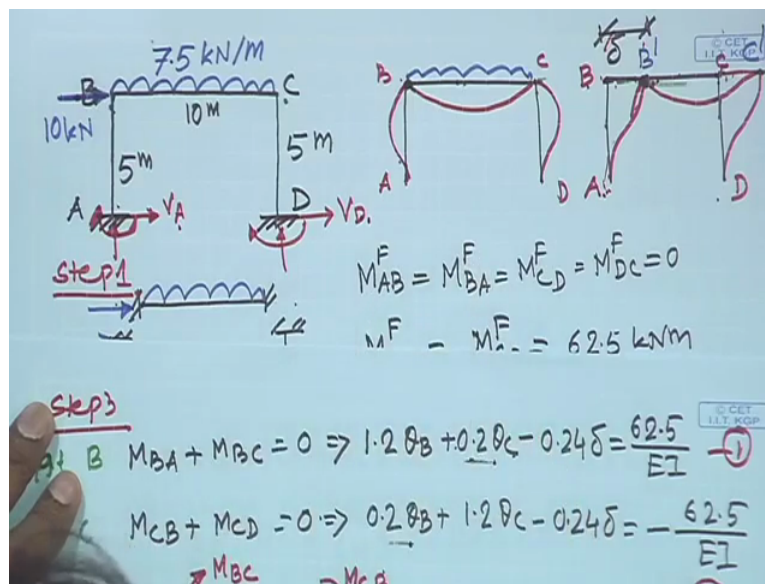 7.5 kN/m
B C
10kN
10 M
5 m 5 m
A D
V_A V_D.
B C
A D
δ
B B' C C'
A D
© CET
I.I.T. KGP
Step1
M^F_AB = M^F_BA = M^F_CD = M^F_DC = 0
= 62.5 kNm
Step3
At B M_BA + M_BC = 0 => 1.2 θ_B + 0.2 θ_C - 0.24 δ = 62.5/EI - ①
© CET
I.I.T. KGP
M_CB + M_CD = 0 => 0.2 θ_B + 1.2 θ_C - 0.24 δ = - 62.5/EI
M_BC M_CB